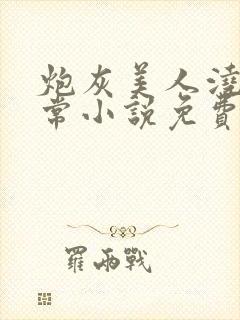 炮灰美人澆
常小說免費
羅兩戰